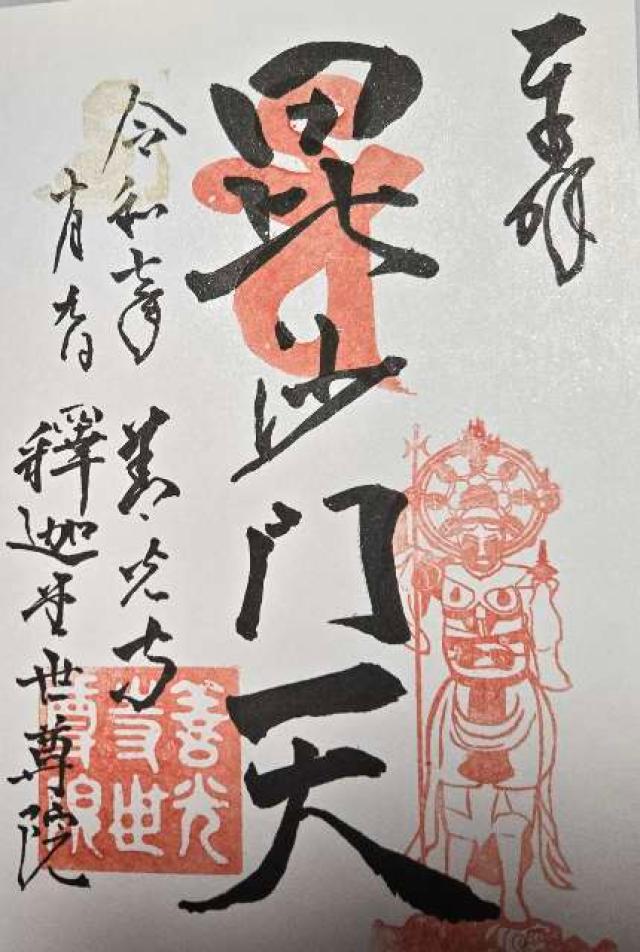 奉拝
毘沙門天
令和七年
十月九日
善光寺
釋迦堂世尊院
善光
寺世
尊院